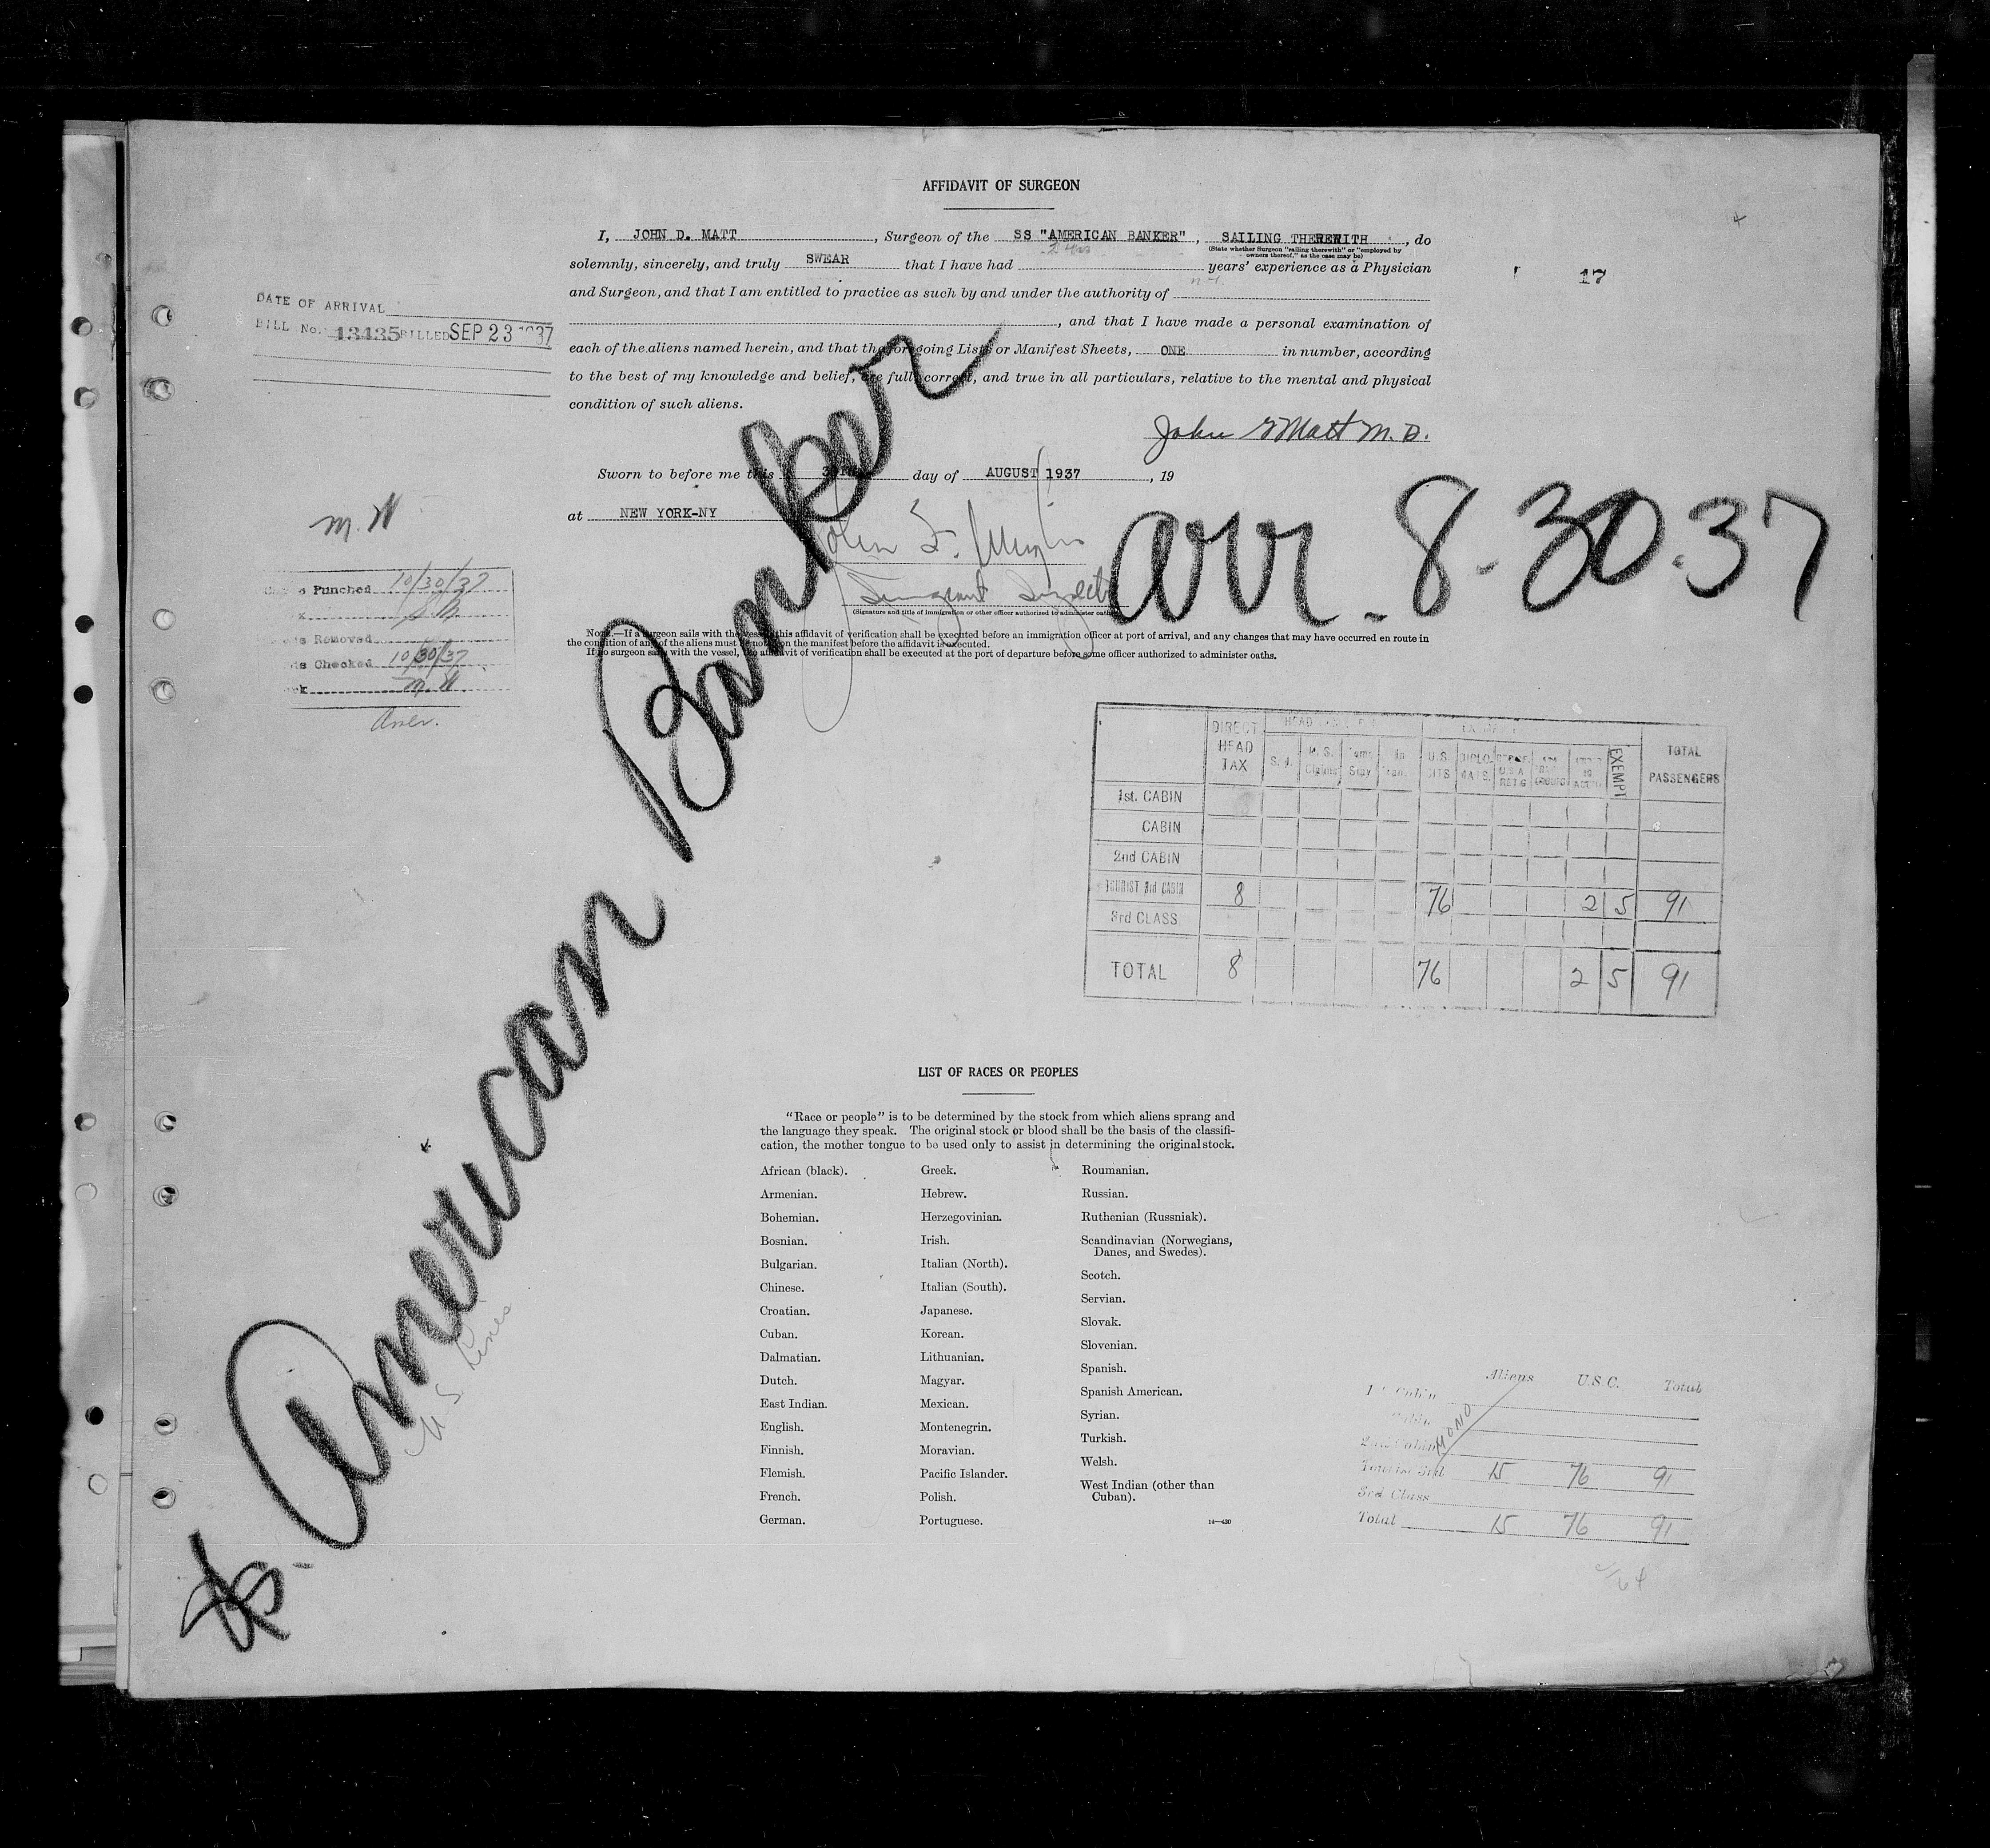 AFFIDAVIT OF SURGEON
I, JOHN D. MATT, Surgeon of the SS "AMERICAN BANKER", SAILING THEREWITH, do
(State whether Surgeon "sailing therewith" or "employed by
owners thereof," as the case may be)
solemnly, sincerely, and truly SWEAR that I have had years' experience as a Physician
and Surgeon, and that I am entitled to practice as such by and under the authority of
, and that I have made a personal examination of
each of the aliens named herein, and that the foregoing Lists or Manifest Sheets, ONE in number, according
to the best of my knowledge and belief, are full, correct, and true in all particulars, relative to the mental and physical
condition of such aliens.
17
DATE OF ARRIVAL
BILL No. 13435 BILLED SEP 23 1937
John D Matt M.D.
Sworn to before me this day of AUGUST 1937, 19
at NEW YORK-NY
(Signature and title of immigration or other officer authorized to administer oaths)
NOTE.—If a surgeon sails with the vessel, this affidavit of verification shall be executed before an immigration officer at port of arrival, and any changes that may have occurred en route in
the condition of any of the aliens must be noted on the manifest before the affidavit is executed.
If no surgeon sails with the vessel, the affidavit of verification shall be executed at the port of departure before some officer authorized to administer oaths.
arr. 8-30-37
American Banker
U S Lines
Punched 10/30/37
Removed
Checked 10/30/37
M.W.
DIRECT HEAD TAX
U.S. CITS
DIPLOMATS.
EXEMPT
TOTAL PASSENGERS
1st. CABIN
CABIN
2nd CABIN
TOURIST 3rd CABIN 8 76 2 5 91
3rd CLASS
TOTAL 8 76 2 5 91
LIST OF RACES OR PEOPLES
"Race or people" is to be determined by the stock from which aliens sprang and
the language they speak. The original stock or blood shall be the basis of the classifi-
cation, the mother tongue to be used only to assist in determining the original stock.
African (black).
Armenian.
Bohemian.
Bosnian.
Bulgarian.
Chinese.
Croatian.
Cuban.
Dalmatian.
Dutch.
East Indian.
English.
Finnish.
Flemish.
French.
German.
Greek.
Hebrew.
Herzegovinian.
Irish.
Italian (North).
Italian (South).
Japanese.
Korean.
Lithuanian.
Magyar.
Mexican.
Montenegrin.
Moravian.
Pacific Islander.
Polish.
Portuguese.
Roumanian.
Russian.
Ruthenian (Russniak).
Scandinavian (Norwegians,
Danes, and Swedes).
Scotch.
Servian.
Slovak.
Slovenian.
Spanish.
Spanish American.
Syrian.
Turkish.
Welsh.
West Indian (other than
Cuban).
14—630
Aliens U.S.C. Total
1st Cabin
Cabin
2nd Cabin
Tourist 3rd 15 76 91
3rd Class
Total 15 76 91